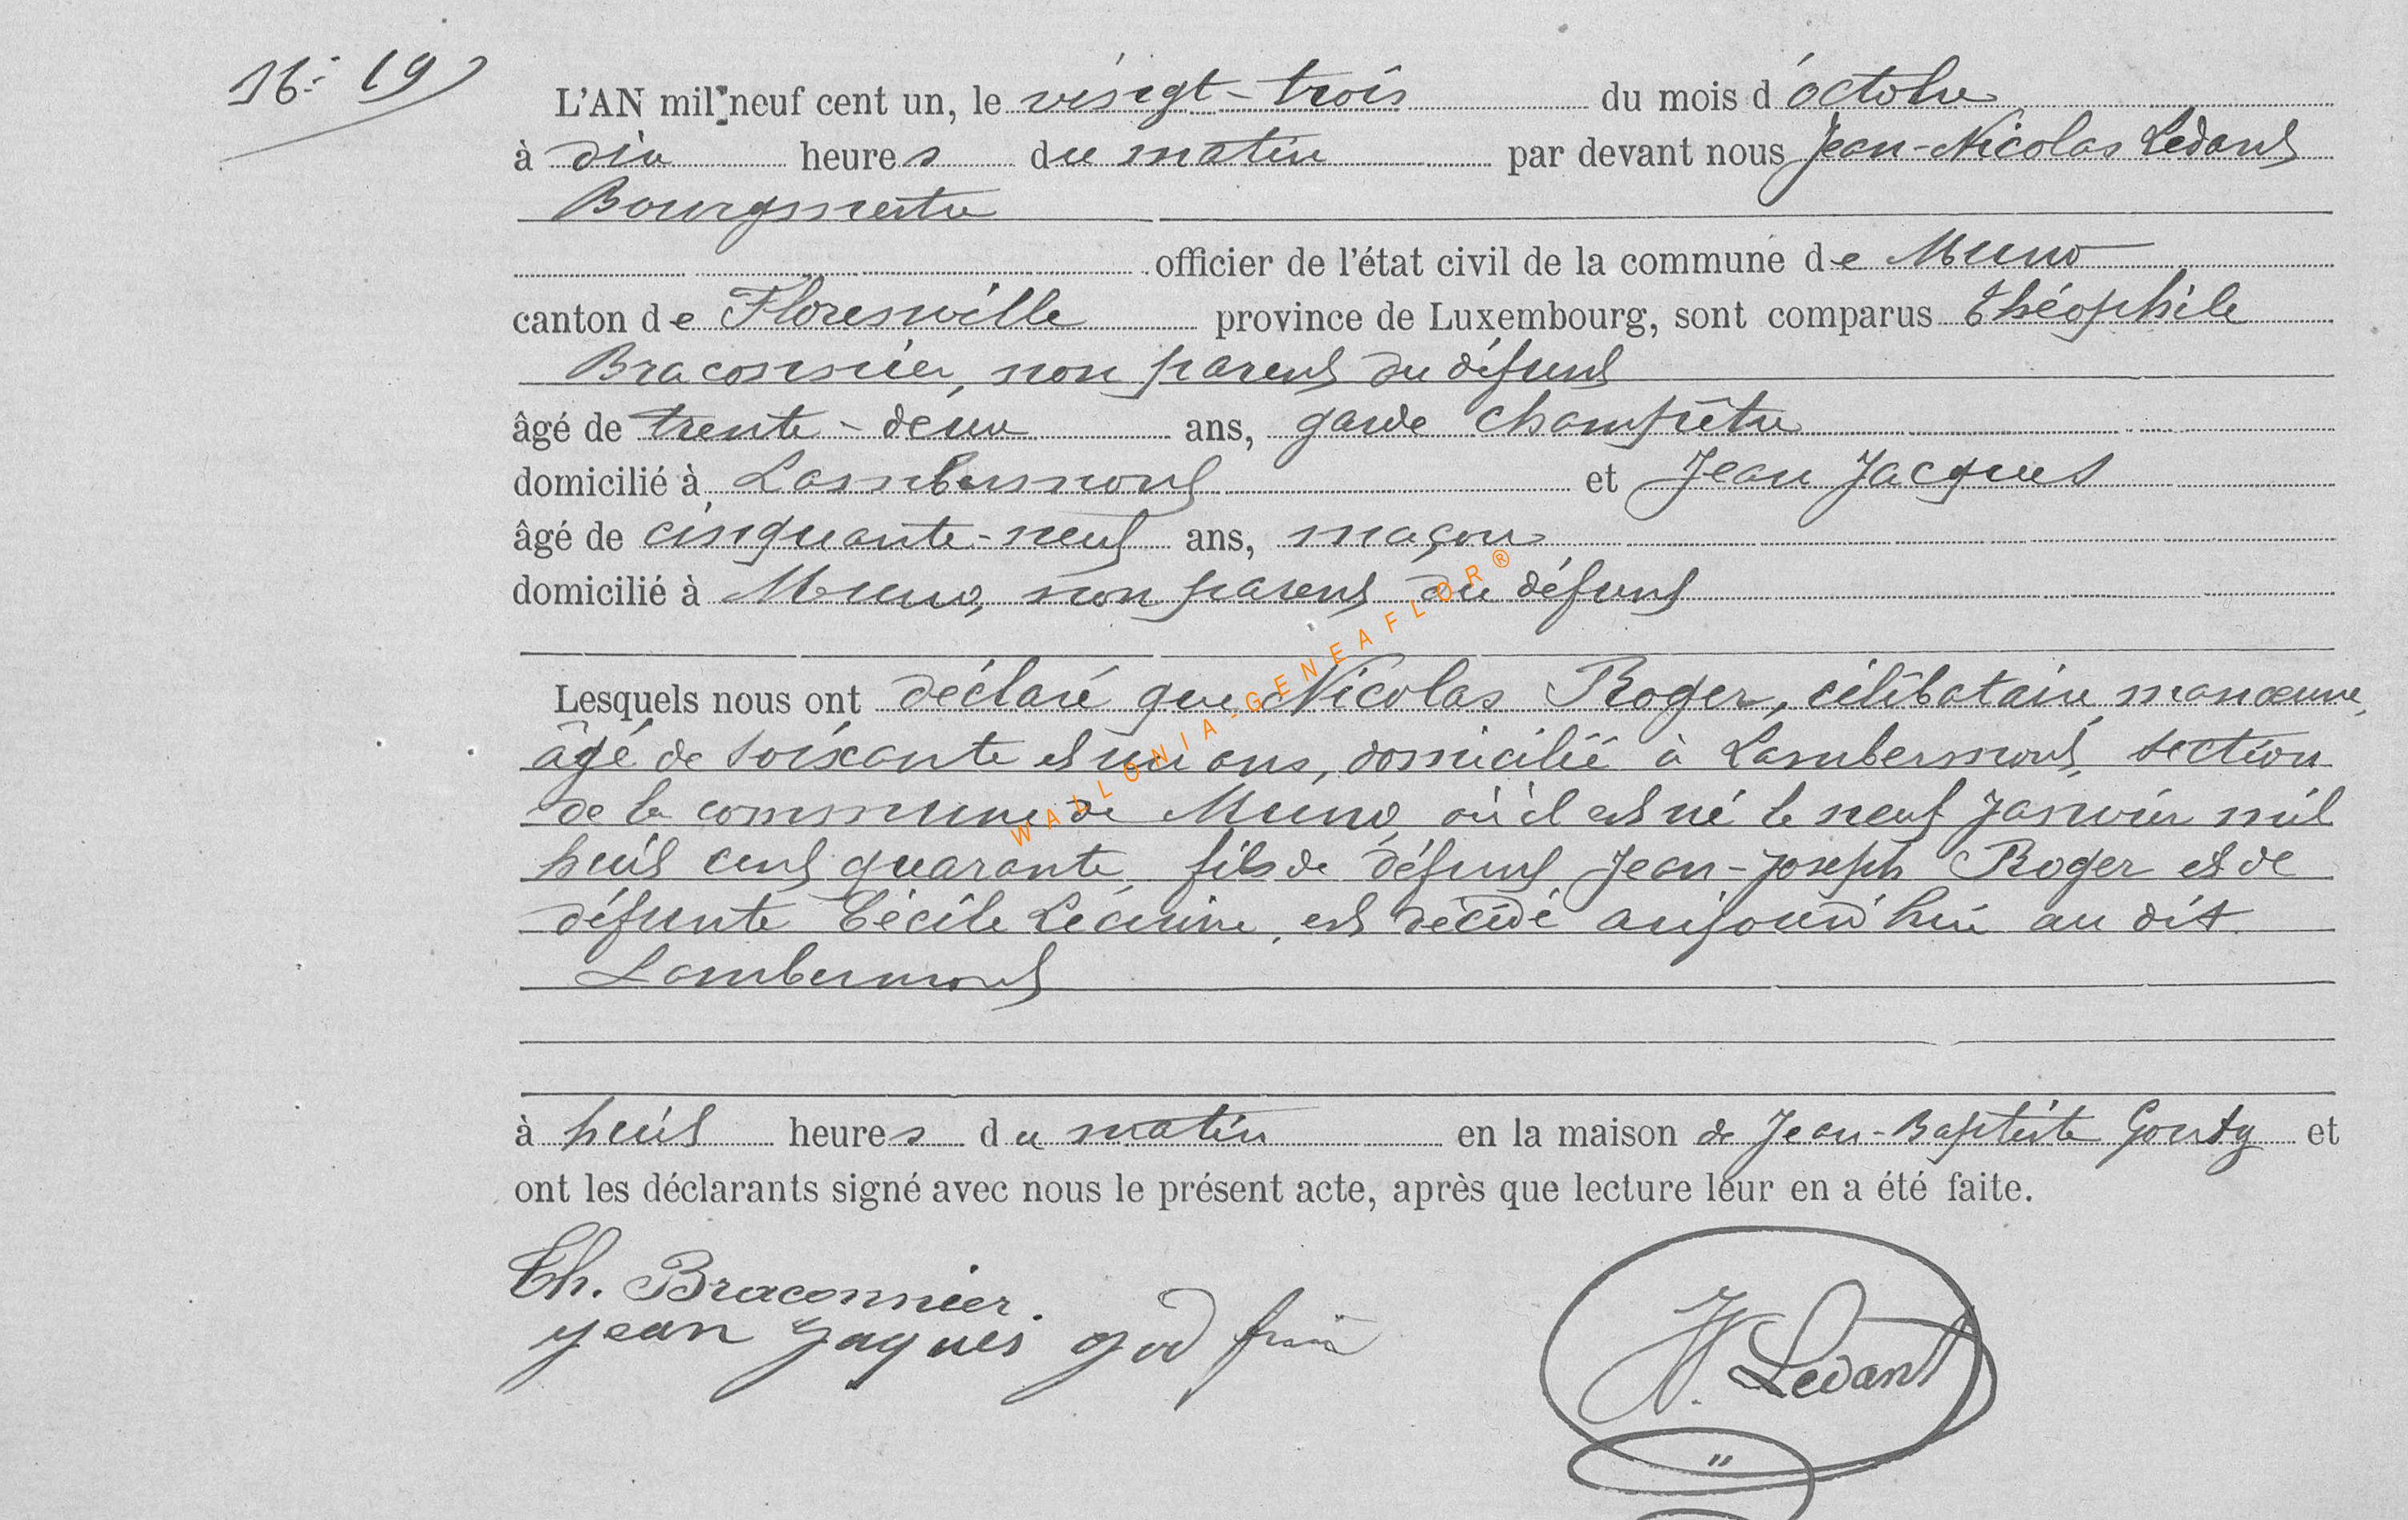 N° 19
L'AN mil neuf cent un, le vingt-trois du mois d'octobre
à dix heures du matin par devant nous Jean-Nicolas Ledant
Bourgmestre
officier de l'état civil de la commune de Muno
canton de Florenville province de Luxembourg, sont comparus Théophile
Braconnier, non parent du défunt
âgé de trente-deux ans, garde champêtre
domicilié à Lambermont et Jean Jacques
âgé de cinquante-neuf ans, maçon
domicilié à Muno, non parent du défunt
Lesquels nous ont déclaré que Nicolas Roger, célibataire manœuvre,
âgé de soixante et un ans, domicilié à Lambermont, section
de la commune de Muno, où il est né le neuf janvier mil
huit cent quarante, fils de défunt Jean-Joseph Roger et de
défunte Cécile Lécuivre, est décédé aujourd'hui au dit
Lambermont
à huit heures du matin en la maison de Jean-Baptiste Gouty et
ont les déclarants signé avec nous le présent acte, après que lecture leur en a été faite.
Th. Braconnier.
jean jaques god frin
N. Ledant
WALLONIA-GENEAFLOR®